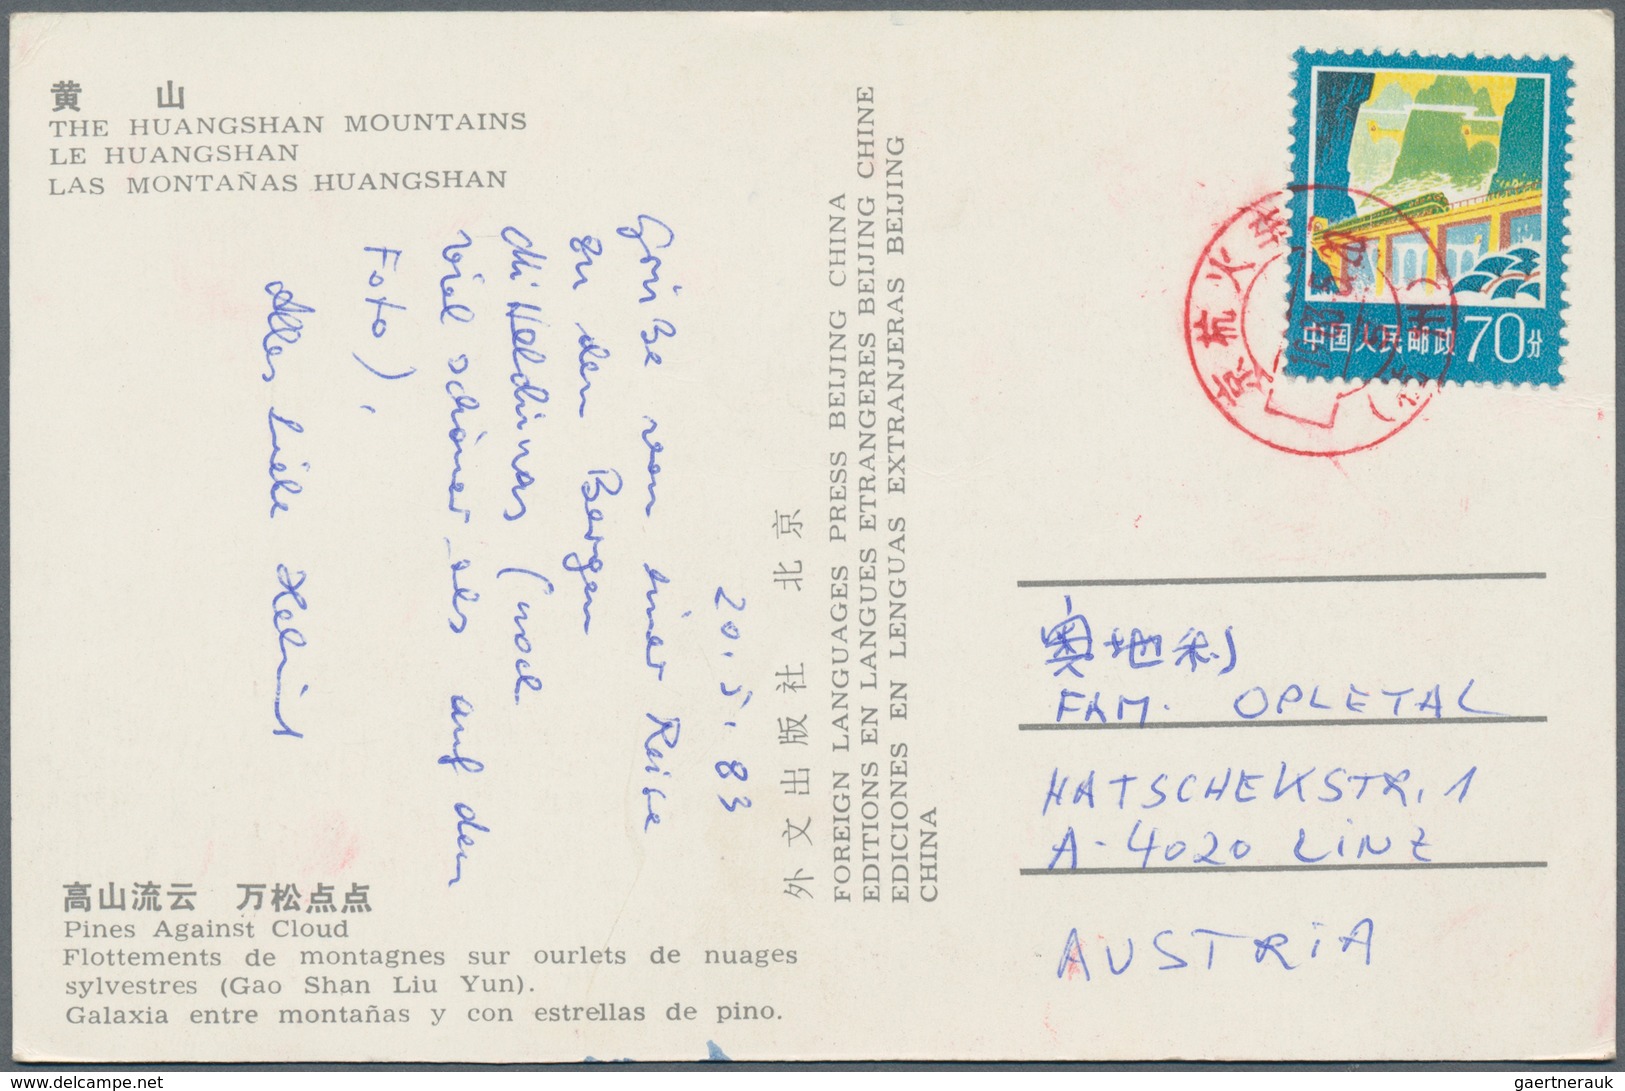 黄 山
THE HUANGSHAN MOUNTAINS
LE HUANGSHAN
LAS MONTAÑAS HUANGSHAN
20. 5. 83
Grüße von einer Reise
zu den Bergen
(noch
viel schöner als auf dem
Foto),
Alles Liebe Helmut
高山流云 万松点点
Pines Against Cloud
Flottements de montagnes sur ourlets de nuages
sylvestres (Gao Shan Liu Yun).
Galaxia entre montañas y con estrellas de pino.
外文出版社 北京
FOREIGN LANGUAGES PRESS BEIJING CHINA
EDITIONS EN LANGUES ETRANGERES BEIJING CHINE
EDICIONES EN LENGUAS EXTRANJERAS BEIJING
CHINA
中国人民邮政 70分
京杭火车
奥地利
FAM. OPLETAL
HATSCHEKSTR. 1
A-4020 LINZ
AUSTRIA
www.delcampe.net
gaertnerauk